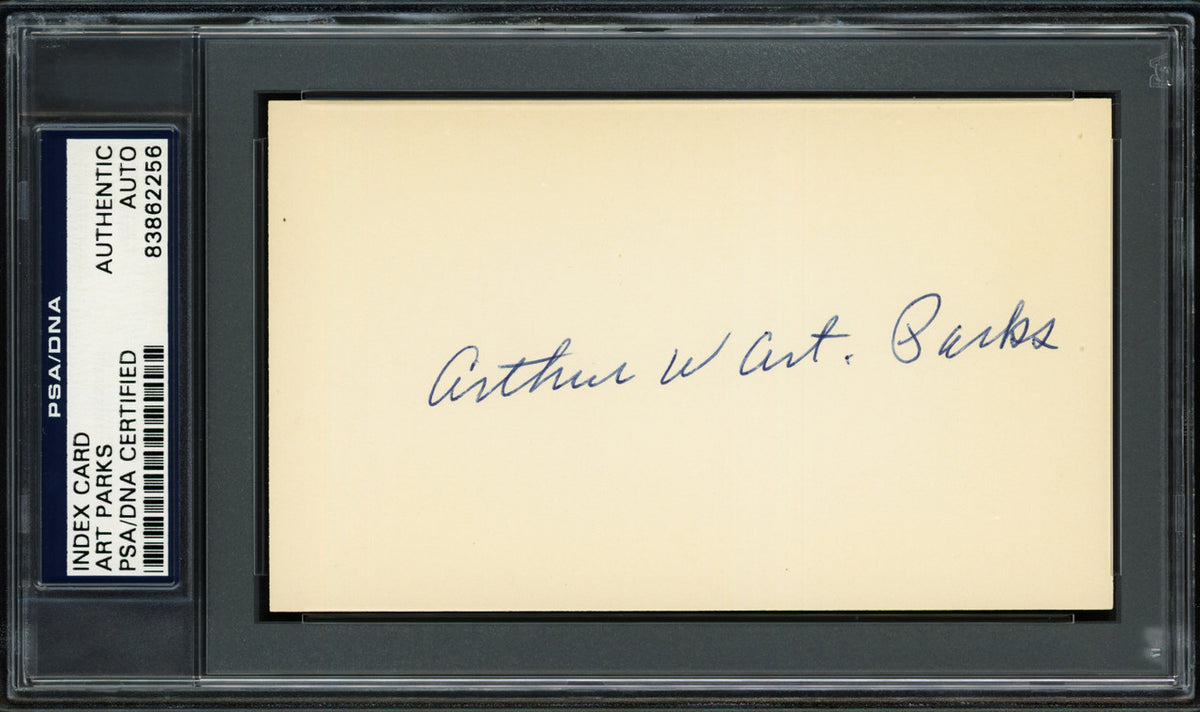 PSA/DNA
INDEX CARD AUTHENTIC
ART PARKS AUTO
PSA/DNA CERTIFIED 83862256
Arthur W Art. Parks